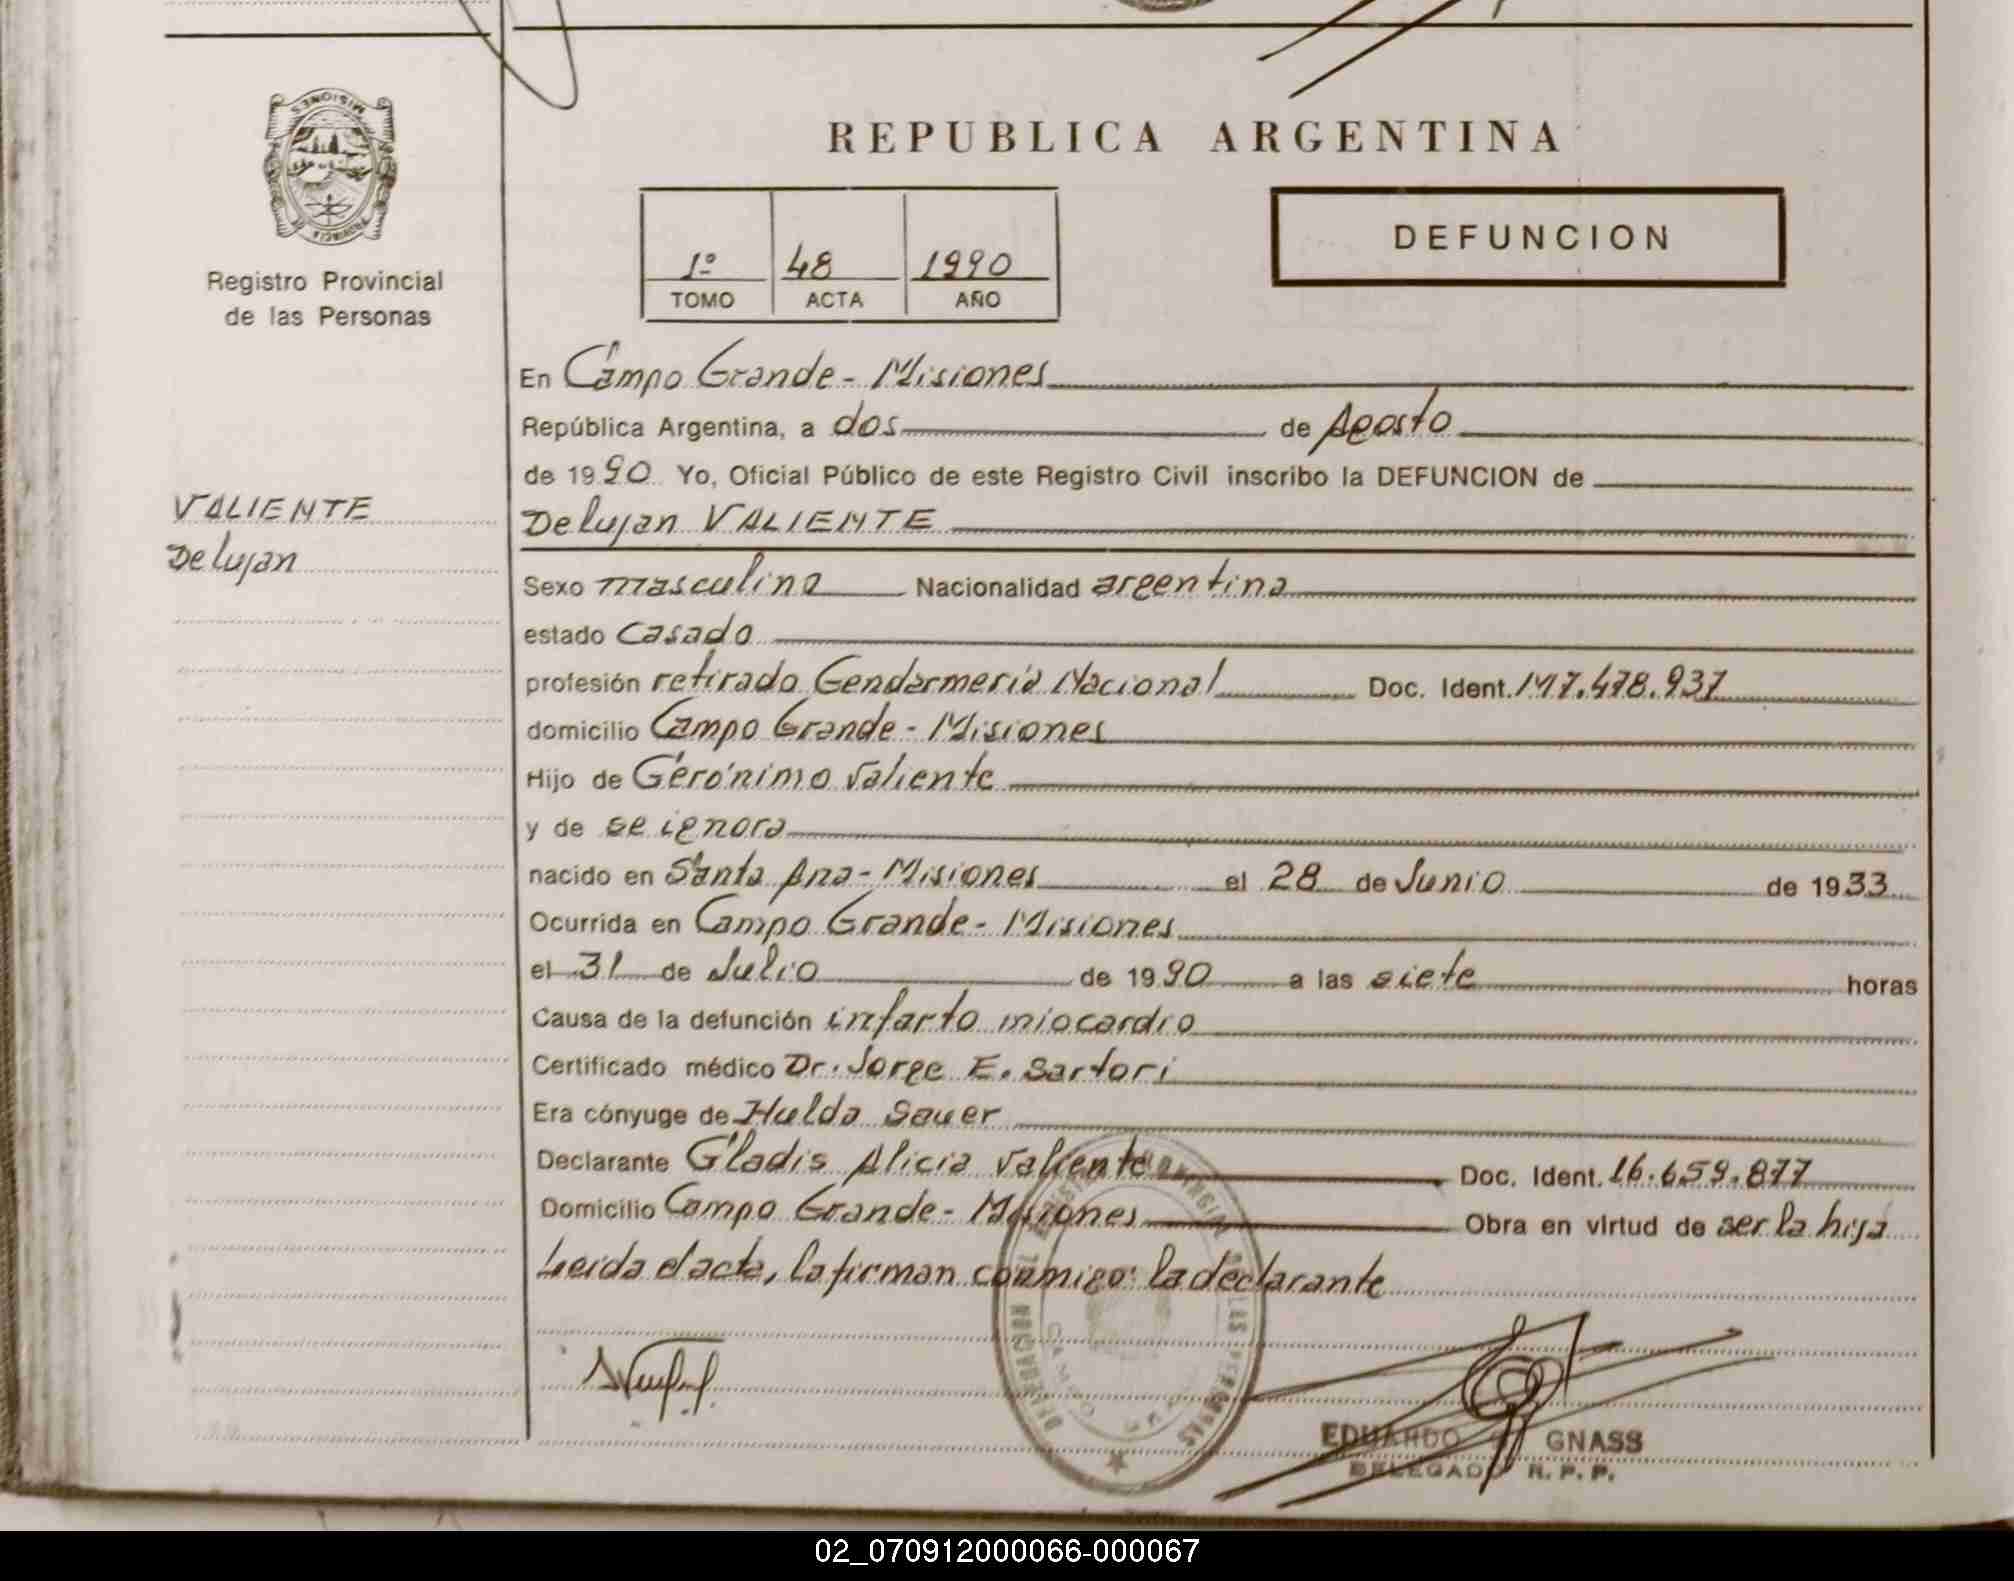 MISIONES
PROVINCIA DE
Registro Provincial
de las Personas
REPUBLICA ARGENTINA
1º 48 1990
TOMO ACTA AÑO
DEFUNCION
En Campo Grande - Misiones
República Argentina, a dos de Agosto
de 1990 Yo, Oficial Público de este Registro Civil inscribo la DEFUNCION de
VALIENTE
Delujan
Delujan VALIENTE
Sexo masculino Nacionalidad argentina
estado casado
profesión retirado Gendarmería Nacional Doc. Ident. M7.478.937
domicilio Campo Grande - Misiones
Hijo de Gerónimo Valiente
y de se ignora
nacido en Santa Ana - Misiones el 28 de Junio de 1933
Ocurrida en Campo Grande - Misiones
el 31 de Julio de 1990 a las siete horas
Causa de la defunción infarto miocardio
Certificado médico Dr. Jorge E. Sartori
Era cónyuge de Hulda Sauer
Declarante Gladis Alicia Valiente Doc. Ident. 16.659.877
Domicilio Campo Grande - Misiones Obra en virtud de ser la hija
Leída el acta, la firman conmigo: la declarante
EDUARDO GNASS
DELEGADO R. P. P.
02_070912000066-000067